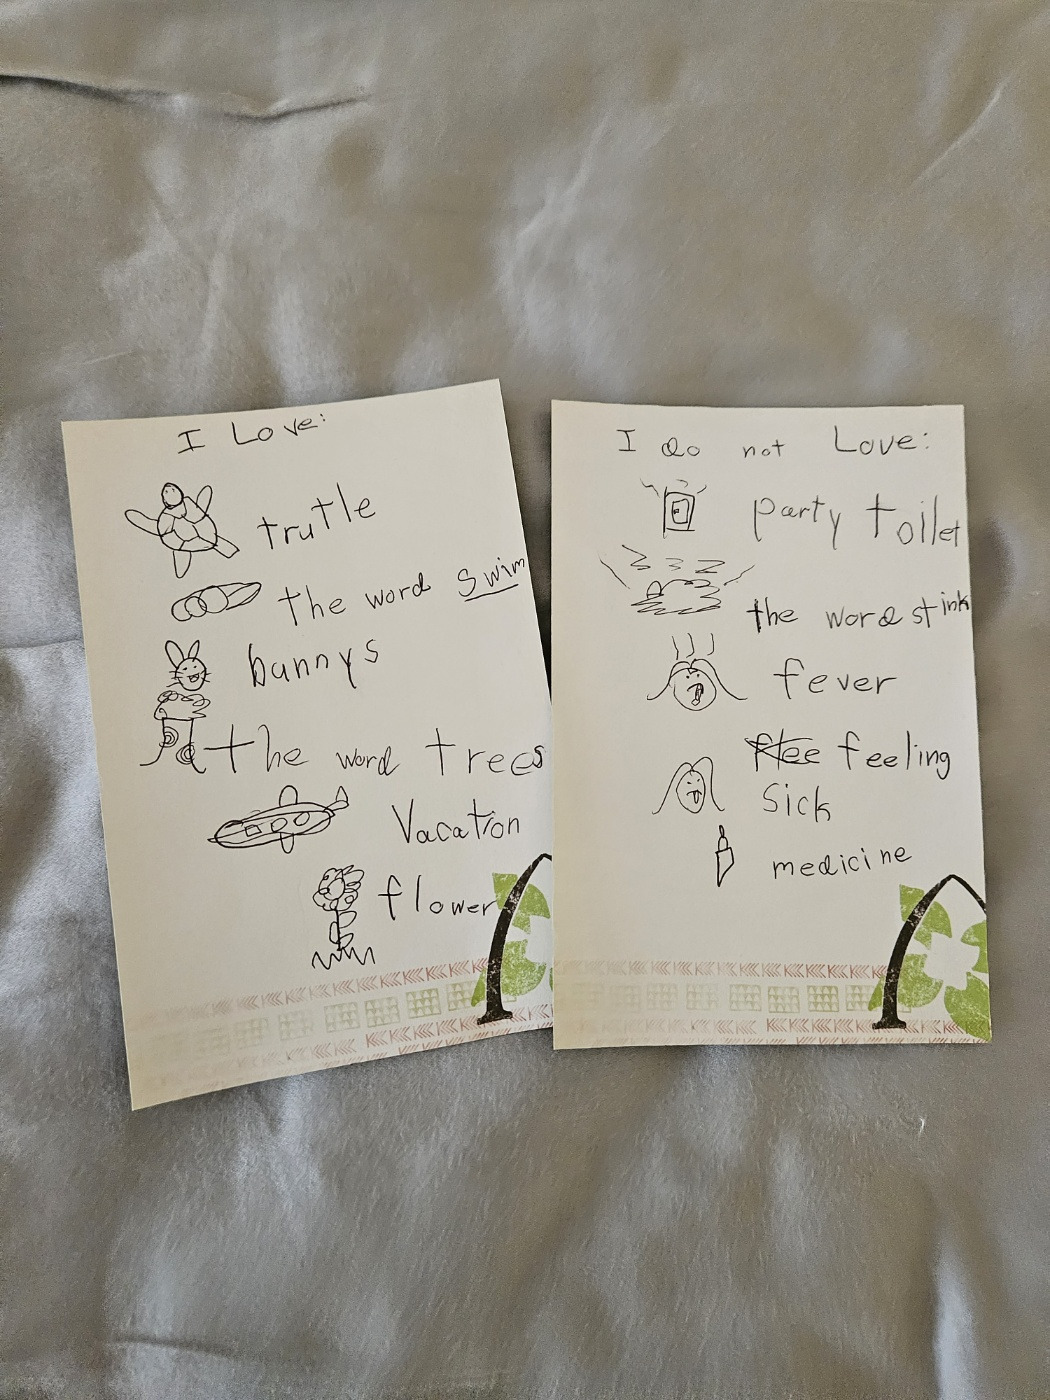 I Love:
trutle
the word swim
bunnys
the word trees
Vacation
flower
I do not Love:
party toilet
the word stink
fever
flee feeling
sick
medicine